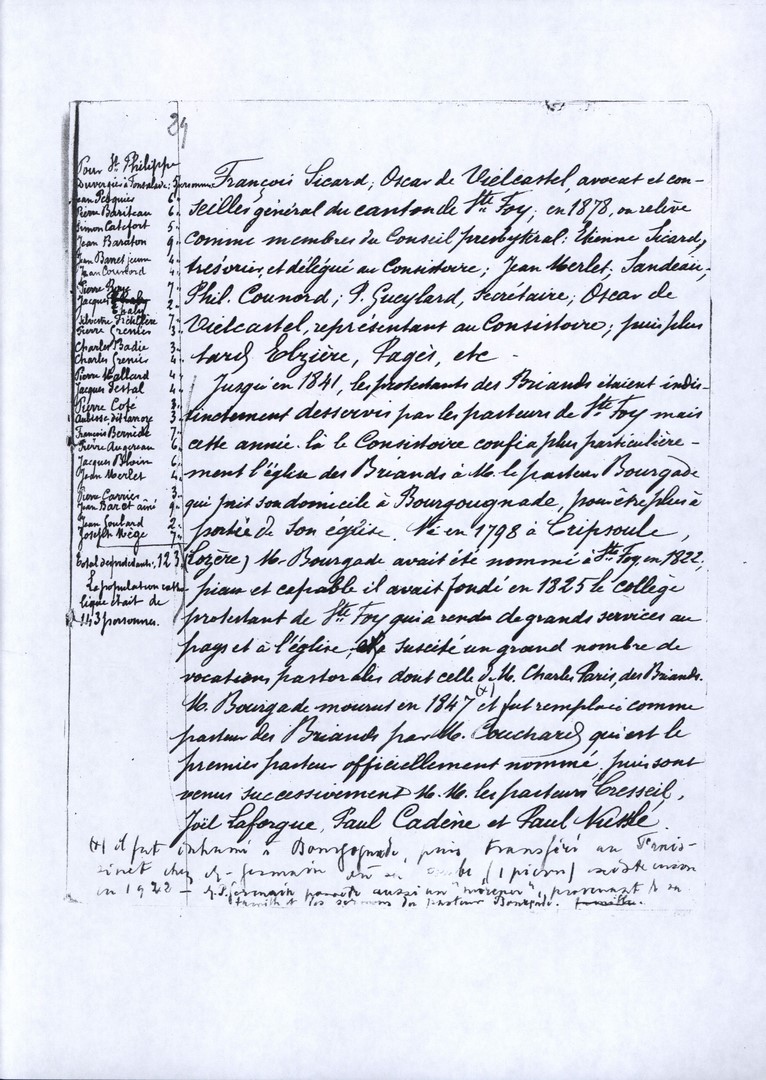 29
Pour St Philippe
Duvergiès à Fontsalade: 5 personnes
Jean 6
Pierre Bariteau 6
Simon Catefort 5
Jean Baraton 9
Jean Barret jeune 4
Jean Counord 4
Pierre 7
Jacques 2
Silvestre 7
Pierre Grenier 3
Charles Badie 3
Charles Grenier 4
Pierre Mallard 4
Jacques Festal 4
Pierre Coté 3
3
François Bernède 7
Pierre Augereau 6
Jacques Blouin 6
Jean Merlet 4
Pierre Carrier 3
Jean Baret ainé 9
Jean Goulard 2
Joseph Mège 7
Total des protestants: 123
La population catho-
lique était de
143 personnes.
François Sicard; Oscar de Vielcastel, avocat et con-
seiller général du canton de Ste Foy; en 1878, on relève
comme membres du Conseil presbytéral: Etienne Sicard,
trésorier, et délégué au Consistoire; Jean Merlet, Sandeau,
Phil. Counord; P. Gueylard, secrétaire; Oscar de
Vielcastel, représentant au Consistoire; puis plus
tard Elzière, Pagès, etc -
Jusqu'en 1841, les protestants des Briands étaient indis-
tinctement desservis par les pasteurs de Ste Foy mais
cette année-là le Consistoire confia plus particulière-
ment l'église des Briands à M. le pasteur Bourgade
qui prit son domicile à Bourgougnade, pour être plus à
portée de son église. Né en 1798 à Cripsoule,
(Lozère) M. Bourgade avait été nommé à Ste Foy, en 1822;
pieux et capable il avait fondé en 1825 le collège
protestant de Ste Foy qui a rendu de grands services au
pays et à l'église, suscité un grand nombre de
vocations pastorales dont celle de M. Charles Paris, des Briands.
M. Bourgade mourut en 1847 (x) et fut remplacé comme
pasteur des Briands par M. Couchard qui est le
premier pasteur officiellement nommé, puis sont
venus successivement M. M. les pasteurs Cresseil,
Joël Laforgue, Paul Cadène et Paul Nusslé.
(x) il fut inhumé à Bourgognade, puis transféré au
chez Mr Germain où sa tombe (1 pierre) existe encore
en 1922 - Germain possède aussi un provenant de sa
famille et les sermons du pasteur Bourgade.